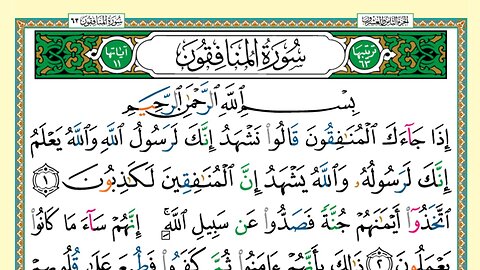 سُورَةُ المُنَافِقُون ٦٣
تَرْتِيبُهَا ٦٣
سُورَةُ المُنَافِقُونَ
آيَاتُهَا ١١
بِسْمِ ٱللَّهِ ٱلرَّحْمَٰنِ ٱلرَّحِيمِ
إِذَا جَآءَكَ ٱلْمُنَٰفِقُونَ قَالُوا۟ نَشْهَدُ إِنَّكَ لَرَسُولُ ٱللَّهِ وَٱللَّهُ يَعْلَمُ
إِنَّكَ لَرَسُولُهُۥ وَٱللَّهُ يَشْهَدُ إِنَّ ٱلْمُنَٰفِقِينَ لَكَٰذِبُونَ ١
ٱتَّخَذُوٓا۟ أَيْمَٰنَهُمْ جُنَّةً فَصَدُّوا۟ عَن سَبِيلِ ٱللَّهِ ۚ إِنَّهُمْ سَآءَ مَا كَانُوا۟
يَعْمَلُونَ ٢ ذَٰلِكَ بِأَنَّهُمْ ءَامَنُوا۟ ثُمَّ كَفَرُوا۟ فَطُبِعَ عَلَىٰ قُلُوبِهِمْ